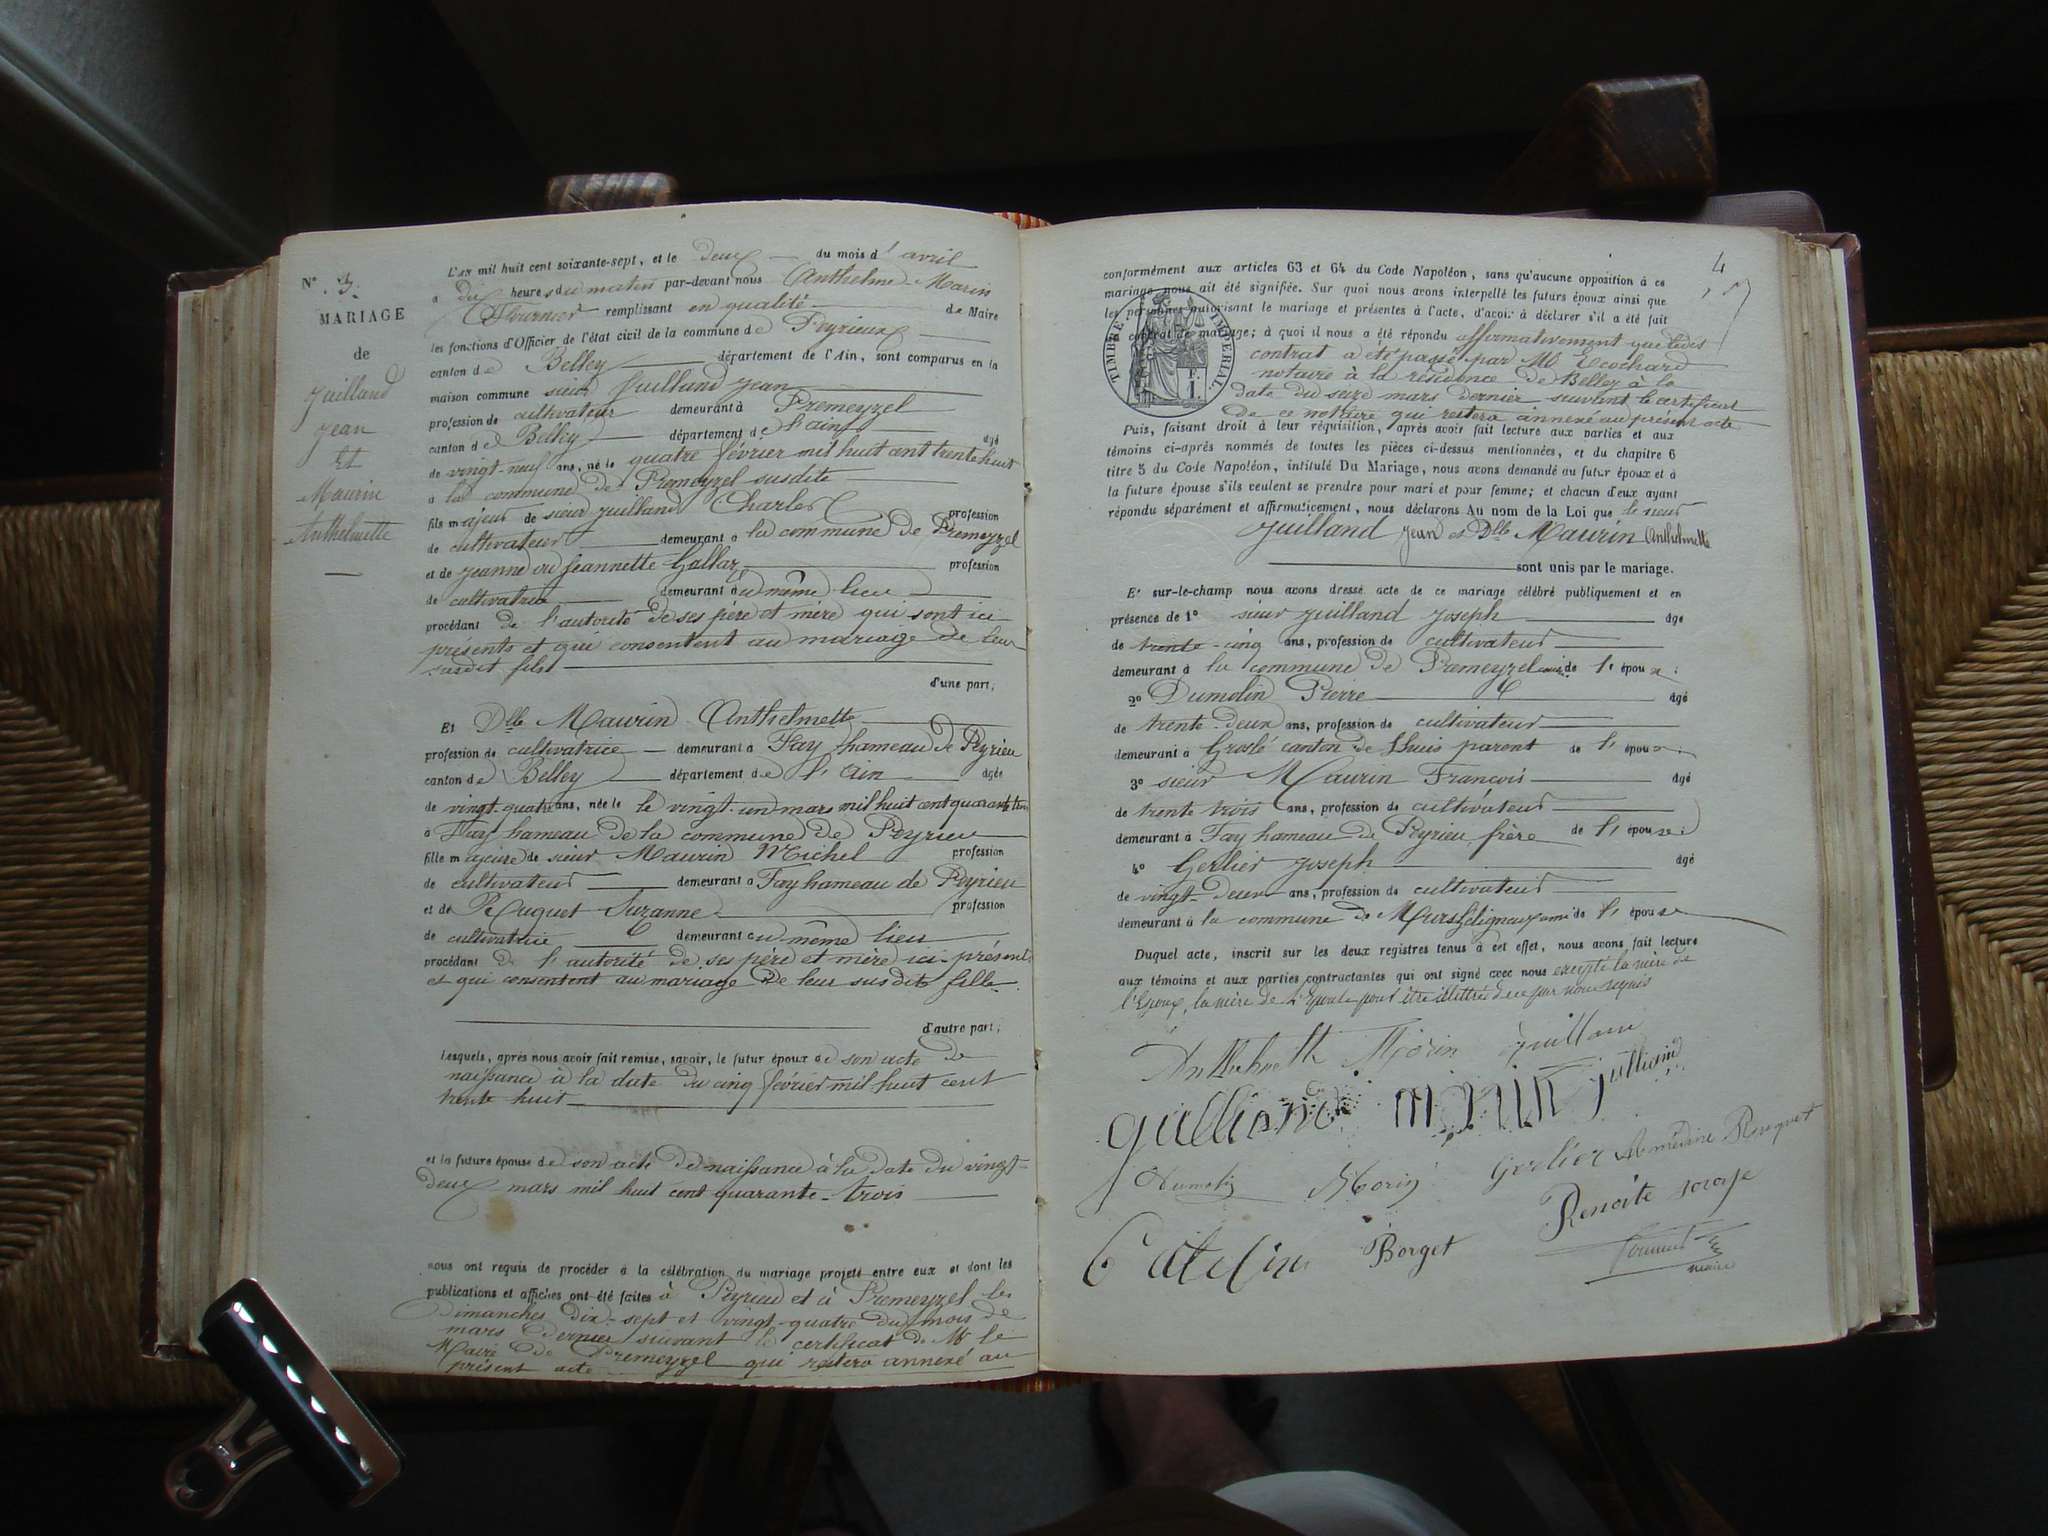 N° 3.
MARIAGE
de
Juilland
Jean
Et
Maurin
Anthelmette
L'AN mil huit cent soixante-sept, et le deux du mois d'avril
à dix heures du matin par-devant nous Anthelme Marin
Fournier remplissant en qualité de Maire
les fonctions d'Officier de l'état civil de la commune de Peyrieux
canton de Belley département de l'Ain, sont comparus en la
maison commune sieur Juilland Jean
profession de cultivateur demeurant à Premeyzel
canton de Belley département de l'ain âgé
de vingt-neuf ans, né le quatre février mil huit cent trente huit
à la commune de Premeyzel susdite
fils majeur de sieur Juilland Charles profession
de cultivateur demeurant à la commune de Premeyzel
et de Jeanne ou Jeannette Gallay profession
de cultivatrice demeurant au même lieu
procédant de l'autorité de ses père et mère qui sont ici
présents et qui consentent au mariage de leur
susdit fils
d'une part;
Et Dlle Maurin Anthelmette
profession de cultivatrice demeurant à Fay hameau de Peyrieu
canton de Belley département de l'Ain âgée
de vingt-quatre ans, née le le vingt-un mars mil huit cent quarante trois
à Fay hameau de la commune de Peyrieu
fille majeure de sieur Maurin Michel profession
de cultivateur demeurant à Fay hameau de Peyrieu
et de Suzanne profession
de cultivatrice demeurant au même lieu
procédant de l'autorité de ses père et mère ici présents
et qui consentent au mariage de leur susdite fille
d'autre part;
Lesquels, après nous avoir fait remise, savoir, le futur époux de son acte de
naissance à la date du cinq février mil huit cent
trente huit
et la future épouse de son acte de naissance à la date du vingt-
deux mars mil huit cent quarante-trois
nous ont requis de procéder à la célébration du mariage projeté entre eux et dont les
publications et affiches ont été faites à Peyrieu et à Premeyzel les
dimanches dix-sept et vingt-quatre du mois de
mars dernier suivant le certificat de Mr le
Maire de Premeyzel qui restera annexé au
présent acte
4
conformément aux articles 63 et 64 du Code Napoléon, sans qu'aucune opposition à ce
mariage nous ait été signifiée. Sur quoi nous avons interpellé les futurs époux ainsi que
les personnes autorisant le mariage et présentes à l'acte, d'avoir à déclarer s'il a été fait
un contrat de mariage; à quoi il nous a été répondu affirmativement que ledit
contrat a été passé par Me Ecochard
notaire à la résidence de Belley à la
date du seize mars dernier suivant le certificat
de ce notaire qui restera annexé au présent acte
TIMBRE IMPERIAL
Puis, faisant droit à leur réquisition, après avoir fait lecture aux parties et aux
témoins ci-après nommés de toutes les pièces ci-dessus mentionnées, et du chapitre 6
titre 5 du Code Napoléon, intitulé Du Mariage, nous avons demandé au futur époux et à
la future épouse s'ils veulent se prendre pour mari et pour femme; et chacun d'eux ayant
répondu séparément et affirmativement, nous déclarons Au nom de la Loi que le sieur
Juilland Jean et Dlle Maurin Anthelmette
sont unis par le mariage.
Et sur-le-champ nous avons dressé acte de ce mariage célébré publiquement et en
présence de 1° sieur Juilland Joseph âgé
de trente-cinq ans, profession de cultivateur
demeurant à la commune de Premeyzel de l'époux;
2° Dumolin Pierre âgé
de trente-deux ans, profession de cultivateur
demeurant à Groslé canton de Lhuis parent de l'époux
3° sieur Maurin François âgé
de trente trois ans, profession de cultivateur
demeurant à Fay hameau de Peyrieu frère de l'épouse
4° Gerlier Joseph âgé
de vingt-deux ans, profession de cultivateur
demeurant à la commune de ami de l'épouse
Duquel acte, inscrit sur les deux registres tenus à cet effet, nous avons fait lecture
aux témoins et aux parties contractantes qui ont signé avec nous excepté la mère de
l'époux, la mère de l'épouse pour être illettrées de ce par nous requis
Anthelmette Morin Juillan
guilliand morin juilliand
Dumolin Morin Gerlier
Catelin Borget Benoite
Fournier
maire